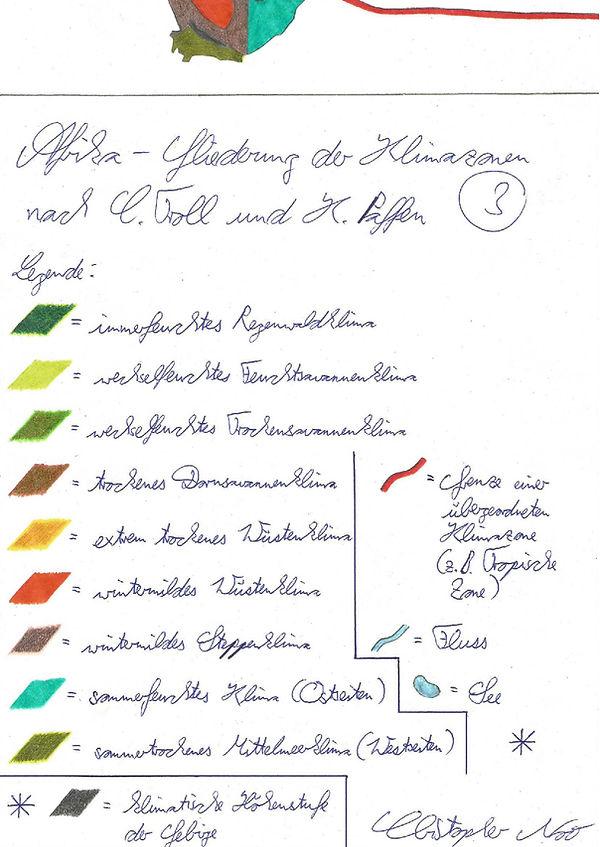 Afrika – Gliederung der Klimazonen
nach C. Troll und K. Paffen
3
Legende:
= immerfeuchtes Regenwaldklima
= wechselfeuchtes Feuchtsavannenklima
= wechselfeuchtes Trockensavannenklima
= trockenes Dornsavannenklima
= extrem trockenes Wüstenklima
= wintermildes Wüstenklima
= wintermildes Steppenklima
= sommerfeuchtes Klima (Ostseiten)
= sommertrockenes Mittelmeerklima (Westseiten)
= Grenze einer
übergeordneten
Klimazone
(z.B. Tropische
Zone)
= Fluss
= See
*
* = klimatische Höhenstufe
der Gebirge